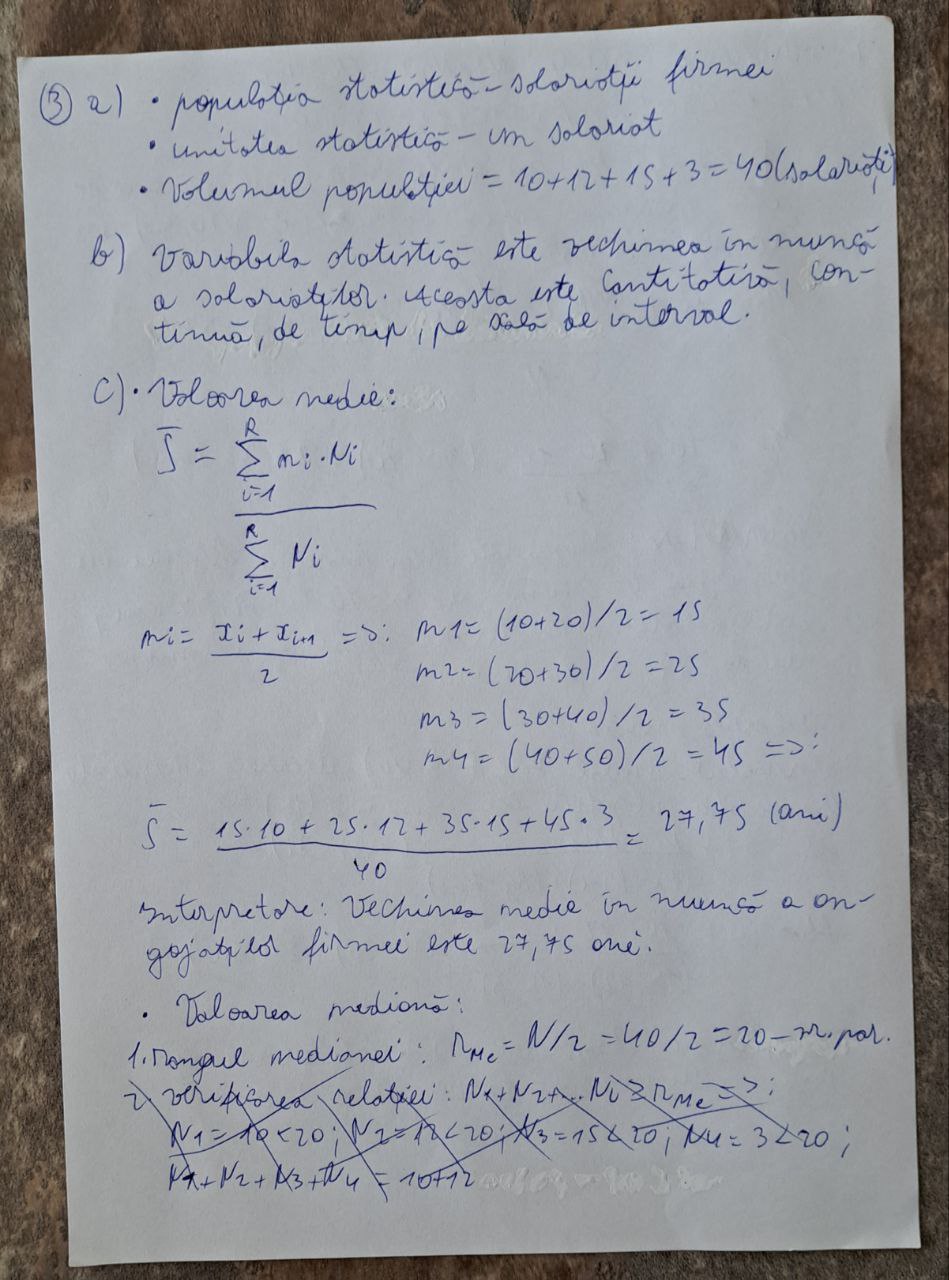 ③ a) • populația statistică - salariații firmei
• unitatea statistică - un salariat
• Volumul populației = 10+12+15+3 = 40 (salariați)
b) Variabila statistică este vechimea în muncă
a salariaților. Aceasta este cantitativă, con-
tinuă, de timp, pe scală de interval.
c) • Valoarea medie:
S̄ = Σ_{i=1}^{R} mi·Ni / Σ_{i=1}^{R} Ni
mi = (xi + xi+1) / 2 => : m1 = (10+20)/2 = 15
m2 = (20+30)/2 = 25
m3 = (30+40)/2 = 35
m4 = (40+50)/2 = 45 => :
S̄ = (15·10 + 25·12 + 35·15 + 45·3) / 40 = 27,75 (ani)
Interpretare: Vechimea medie în muncă a an-
gajaților firmei este 27,75 ani.
• Valoarea mediană:
1. rangul medianei: rMe = N/2 = 40/2 = 20 - nr. par.
2. verificarea relației: N1+N2+...Ni ≥ rMe => :
N1 = 10 < 20; N2 = 12 < 20; N3 = 15 < 20; N4 = 3 < 20;
N1+N2+N3+N4 = 10+12